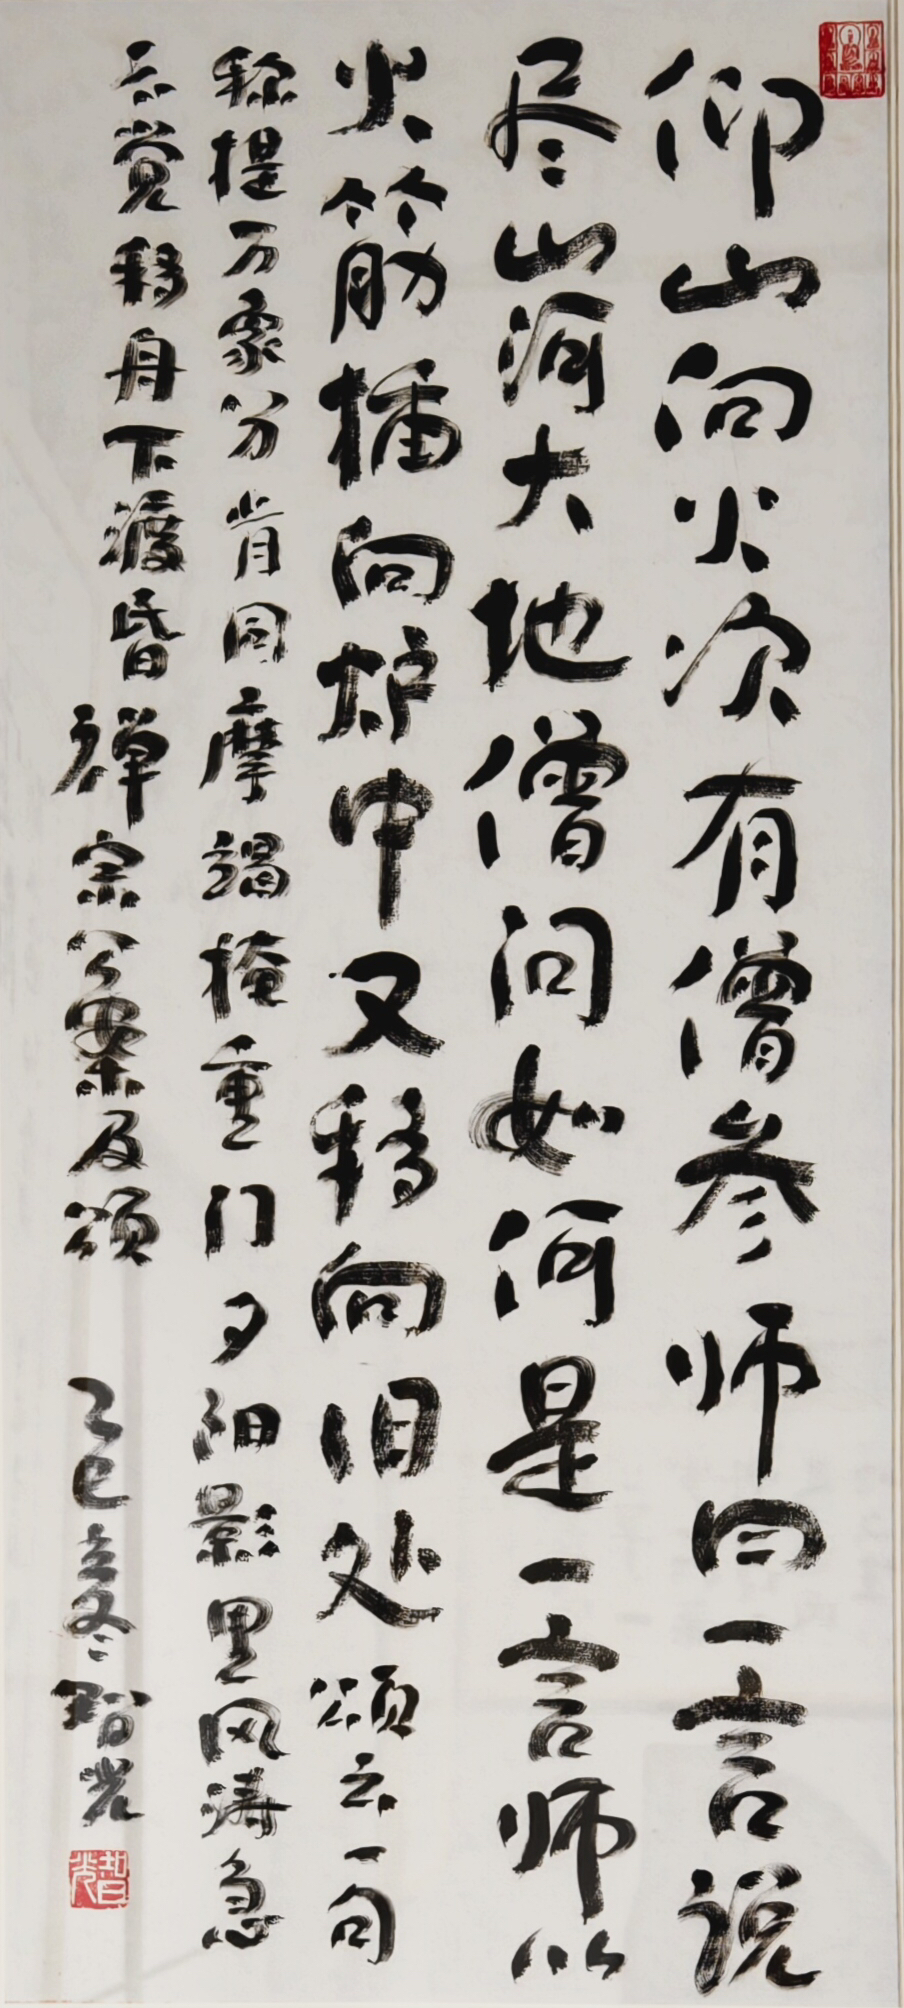 仰山向火次有僧参师曰一言说
尽山河大地僧问如何是一言师以
火筋插向炉中又移向旧处颂云一句
称提万象分肯同摩竭掩重门夕阳影里风涛急
不觉移舟下渡昏
禅宗公案及颂
乙巳立冬智光
智光